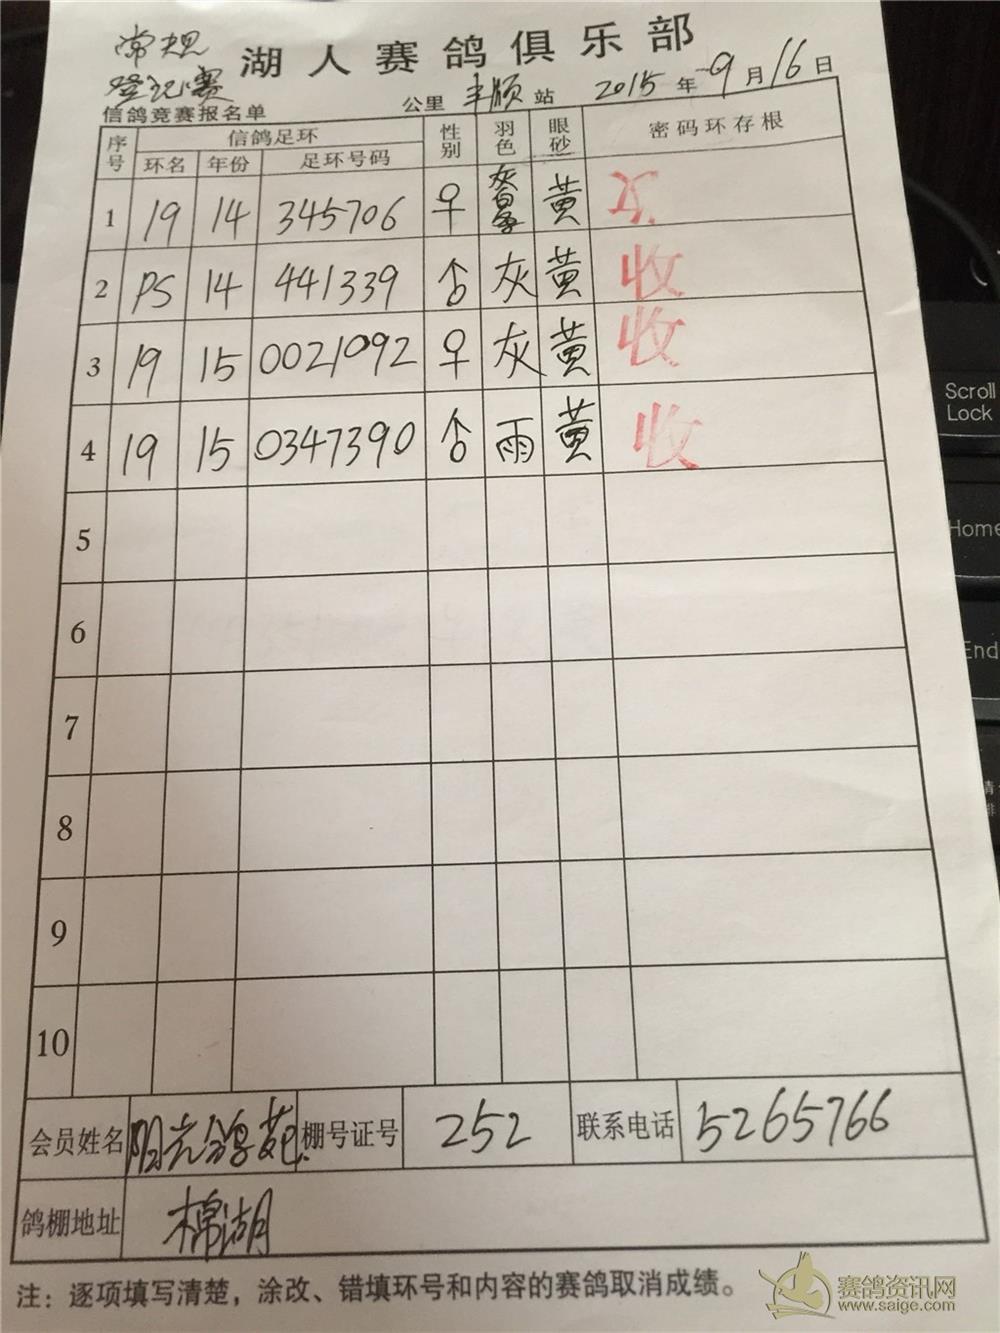 常规
登记赛
湖人赛鸽俱乐部
信鸽竞赛报名单 公里 丰顺 站 2015 年 9 月 16 日
序号 信鸽足环 性别 羽色 眼砂 密码环存根
环名 年份 足环号码
1 19 14 345706 ♀ 黄
2 PS 14 441339 ♂ 灰 黄 收
3 19 15 0021092 ♀ 灰 黄 收
4 19 15 0347390 ♂ 雨 黄 收
5
6
7
8
9
10
会员姓名 阳光鸽苑 棚号证号 252 联系电话 5265766
鸽棚地址 棉湖
注：逐项填写清楚，涂改、错填环号和内容的赛鸽取消成绩。
赛鸽资讯网
www.saige.com
Scroll Lock
Home
End